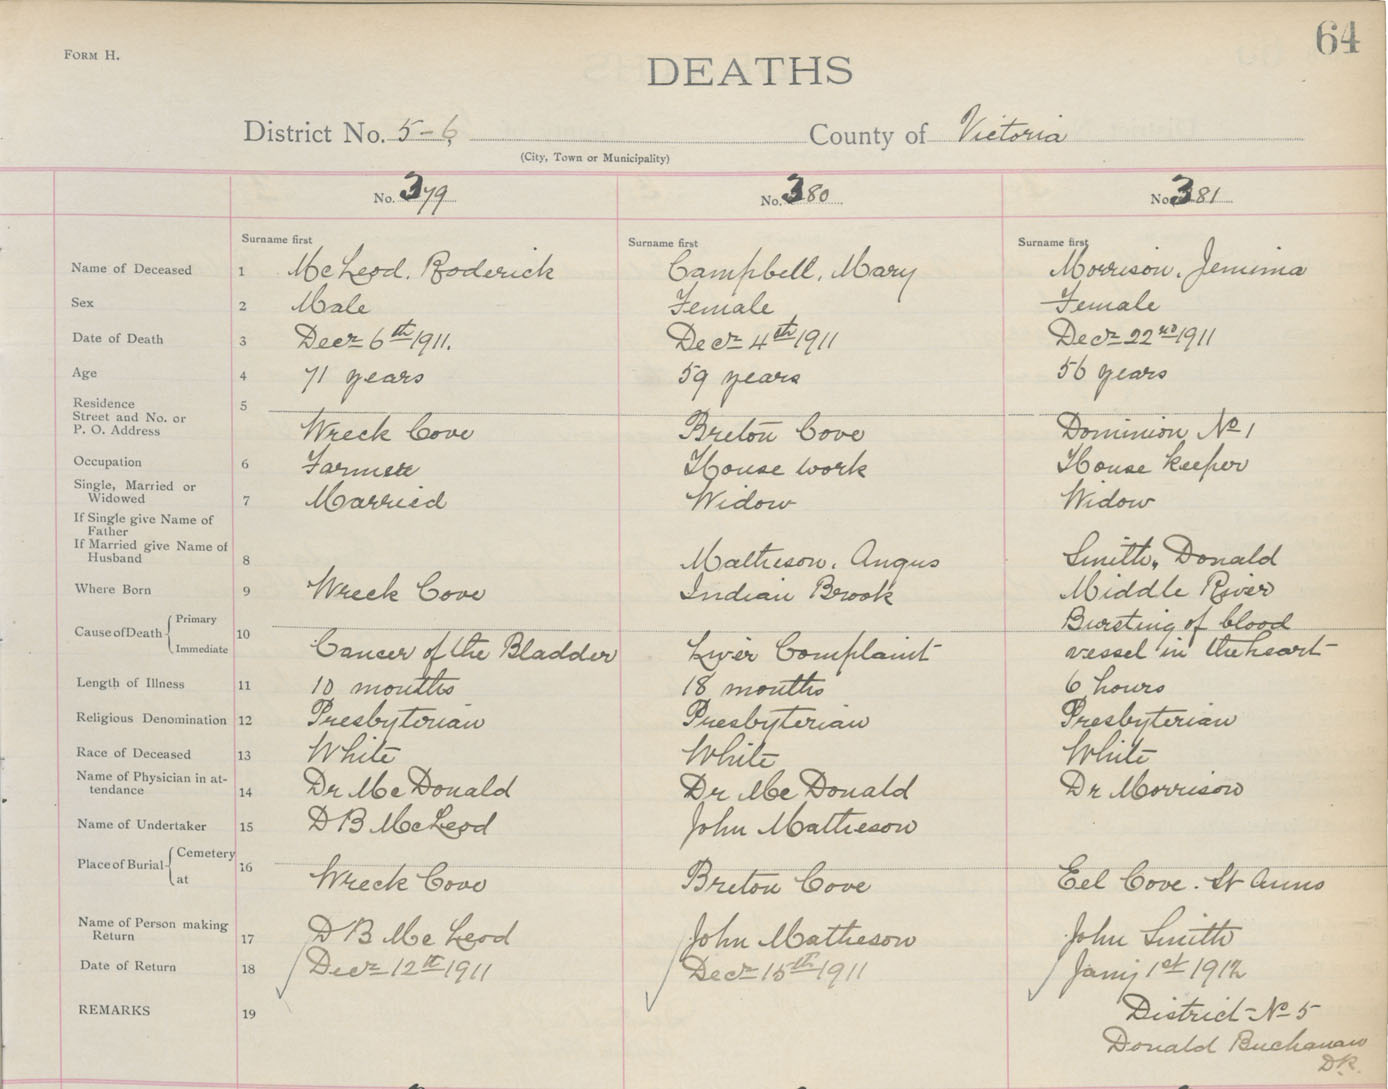 64
FORM H.
DEATHS
District No. 5-6 County of Victoria
(City, Town or Municipality)
No. 379 No. 380 No. 381
Surname first Surname first Surname first
Name of Deceased 1 McLeod, Roderick Campbell, Mary Morrison, Jemima
Sex 2 Male Female Female
Date of Death 3 Decr 6th 1911. Decr 4th 1911 Decr 22nd 1911
Age 4 71 years 59 years 56 years
Residence 5
Street and No. or
P. O. Address Wreck Cove Breton Cove Dominion No 1
Occupation 6 Farmer House work House keeper
Single, Married or
Widowed 7 Married Widow Widow
If Single give Name of
Father
If Married give Name of
Husband 8 Matheson, Angus Smith, Donald
Where Born 9 Wreck Cove Indian Brook Middle River
Cause of Death Primary 10 Bursting of blood
Immediate Cancer of the Bladder Liver Complaint vessel in the heart
Length of Illness 11 10 months 18 months 6 hours
Religious Denomination 12 Presbyterian Presbyterian Presbyterian
Race of Deceased 13 White White White
Name of Physician in at-
tendance 14 Dr McDonald Dr McDonald Dr Morrison
Name of Undertaker 15 D B McLeod John Matheson
Place of Burial Cemetery 16
at Wreck Cove Breton Cove Eel Cove. St Anns
Name of Person making
Return 17 D B McLeod John Matheson John Smith
Date of Return 18 Decr 12th 1911 Decr 15th 1911 Jany 1st 1912
REMARKS 19 District No 5
Donald Buchanan
D.R.